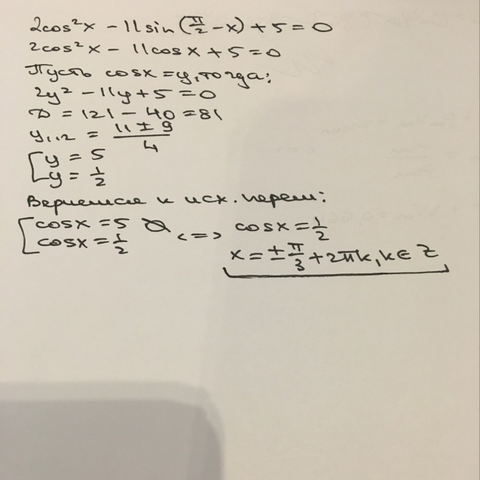 2cos²x - 11sin(π/2 - x) + 5 = 0
2cos²x - 11cosx + 5 = 0
Пусть cosx = y, тогда:
2y² - 11y + 5 = 0
D = 121 - 40 = 81
y₁,₂ = (11 ± 9)/4
[y = 5
[y = 1/2
Вернемся к исх. перем:
[cosx = 5 ∅ <=> cosx = 1/2
[cosx = 1/2
x = ± π/3 + 2πk, k ∈ Z